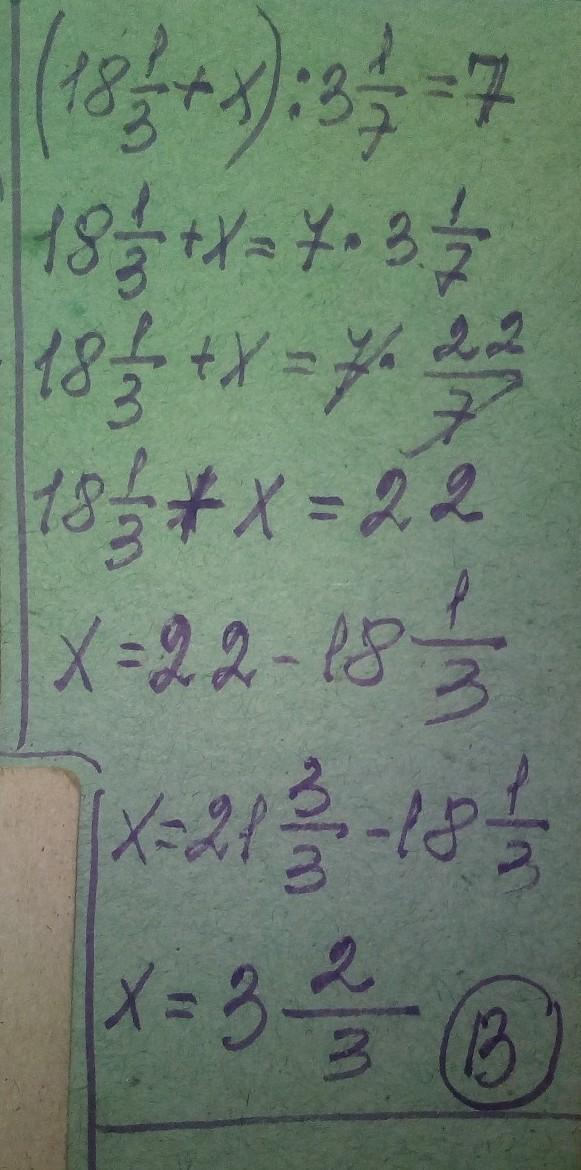 (18 1/3 + x) : 3 1/7 = 7
18 1/3 + x = 7 · 3 1/7
18 1/3 + x = 7 · 22/7
18 1/3 + x = 22
x = 22 - 18 1/3
x = 21 3/3 - 18 1/3
x = 3 2/3 В